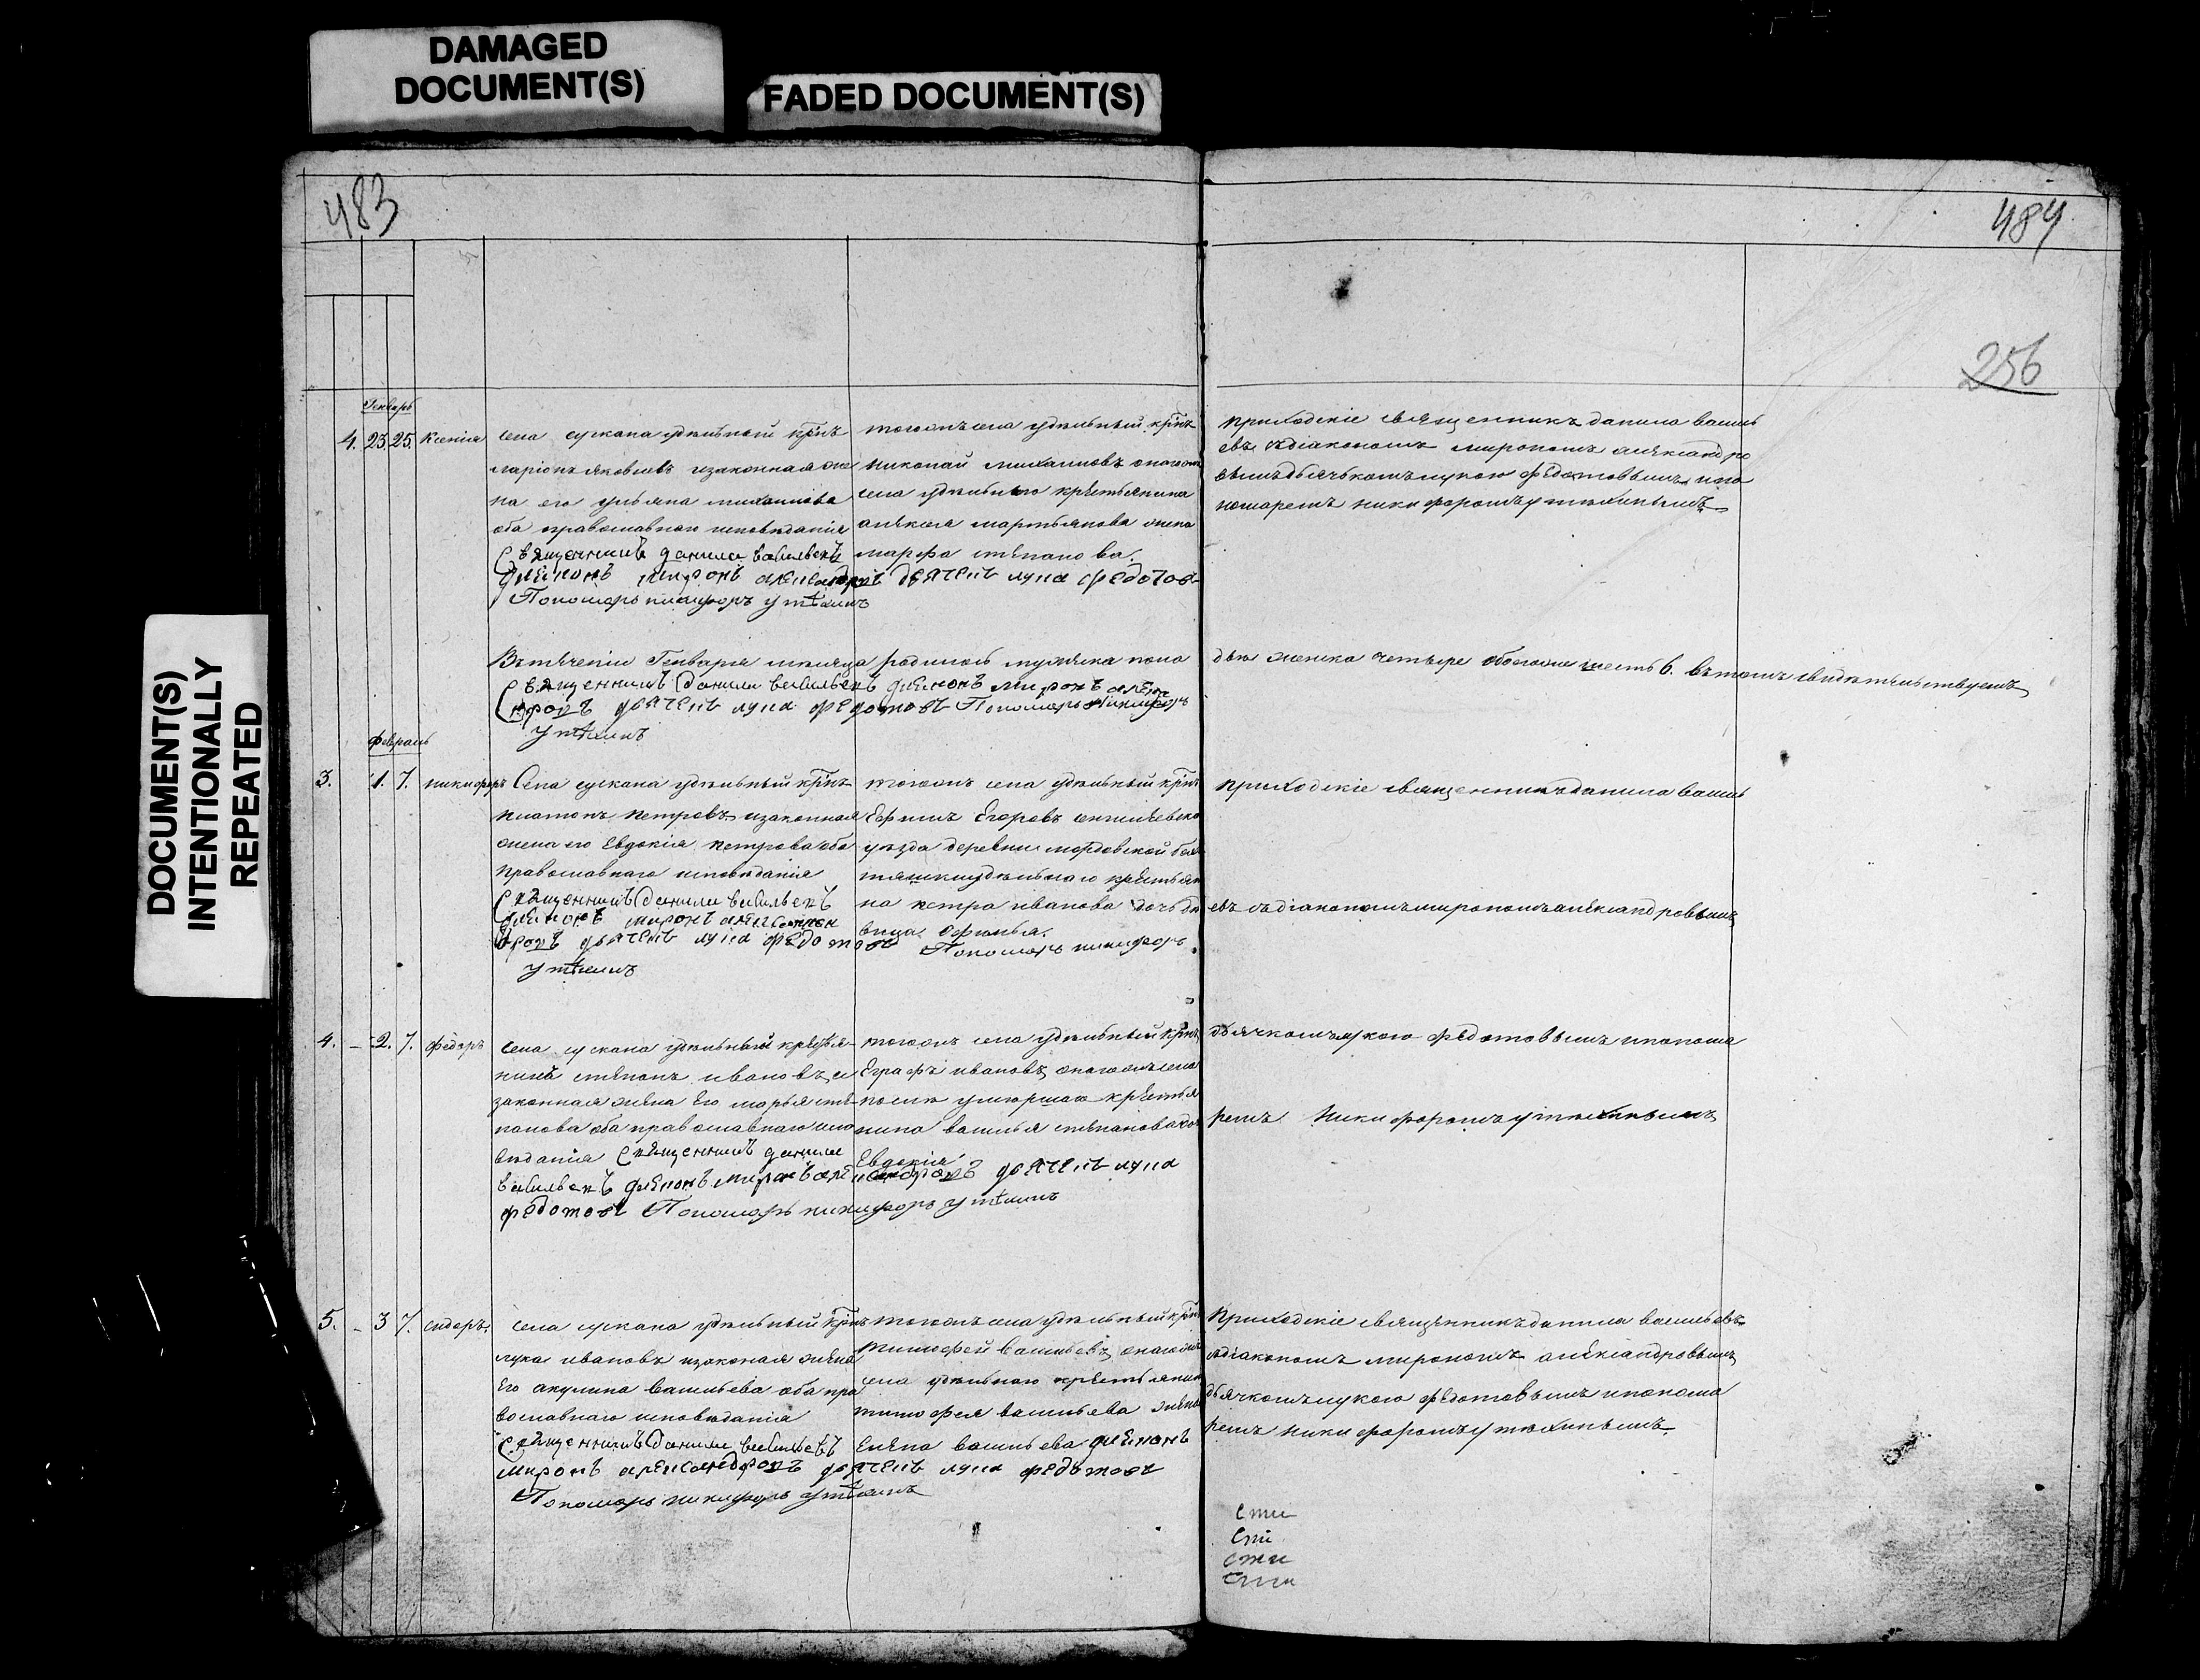 DAMAGED
DOCUMENT(S)
FADED DOCUMENT(S)
DOCUMENT(S)
INTENTIONALLY
REPEATED
483
484
256
Генварь
4. 23. 25. Ксенія
села сускана удѣльный крⷭ҇нъ
ларіонъ яковлевъ изаконная же
на его ульяна михаилова
оба православнаго исповѣданія
Священникъ Данила Васильевъ
діаконъ миронъ александровъ дьячекъ лука федотов
Пономарь никифоръ утѣхинъ
тогожъ села удѣльный крⷭ҇нъ
николай михаиловъ
села удѣльнаго крѣстьянина
алѣксея мартьянова жена
марфа стѣпанова.
приходскіе священникъ данила василь
евъ съдіакономъ мирономъ алѣксандро
вымъ дьячькомъ лукою фѣдотовымъ ипо
номаремъ никифоромъ утѣхинымъ
Въ тѣченіи Генваря мѣсяца родилось мужеска пола
двѣ женска четыре обоегоже шесть 6. въ томъ свидѣтѣльствуемъ
Священникъ Данила Васильевъ діаконъ миронъ алекса
ндровъ дьячекъ лука федотовъ Пономарь Никифоръ
утѣхинъ
Февраль
3. 1. 7. никифоръ
Села сускана удѣльный крⷭ҇нъ
платонъ петровъ изаконная
жена его Евдокія петрова оба
православнаго исповѣданія
Священникъ Данила Васильевъ
діаконъ миронъ
дьячекъ лука федотовъ Пономарь никифоръ
утѣхинъ
тогожъ села удѣльный крⷭ҇нъ
Ефимъ Егоровъ
уѣзда деревни мордовской
удѣльнаго крѣстьян
на петра иванова дочь дѣ
вица Офимья.
приходскіе священникъ данила василь
евъ съдіакономъ мирономъ алѣксандровымъ
4. – 2. 7. федоръ
села сускана удѣльный крѣстья
нинъ стѣпанъ ивановъ, и
законная жена Его марья стѣ
панова оба православнаго испо
вѣданія Священникъ данила
Васильевъ діаконъ миронъ александровъ дьячекъ лука
федотовъ Пономарь никифоръ утѣхинъ
тогожъ села удѣльный крⷭ҇нъ
Еграфъ ивановъ,
умершаго крѣстья
нина василья стѣпанова
Евдокія
дьячкомъ лукою фѣдотовымъ ипонома
ремъ Никифоромъ утѣхинымъ
5. – 3 7. сидоръ.
села сускана удѣльный крⷭ҇нъ
лука ивановъ изаконая жена
Его акулина васильева оба пра
вославнаго исповѣданія
Священникъ Данила Васильевъ
миронъ александровъ дьячекъ лука федотовъ
Пономарь никифоръ утѣхинъ
тогожъ села удѣльный крⷭ҇нъ
тимофей Васильевъ,
села удѣльнаго крѣстьянин
тимофея васильева жена
Елена васильева діаконъ
Приходскіе священникъ данила васильевъ
съдіакономъ мирономъ алѣксандровымъ
дьячкомъ лукою фѣдотовымъ ипонома
ремъ никифоромъ утѣхинымъ